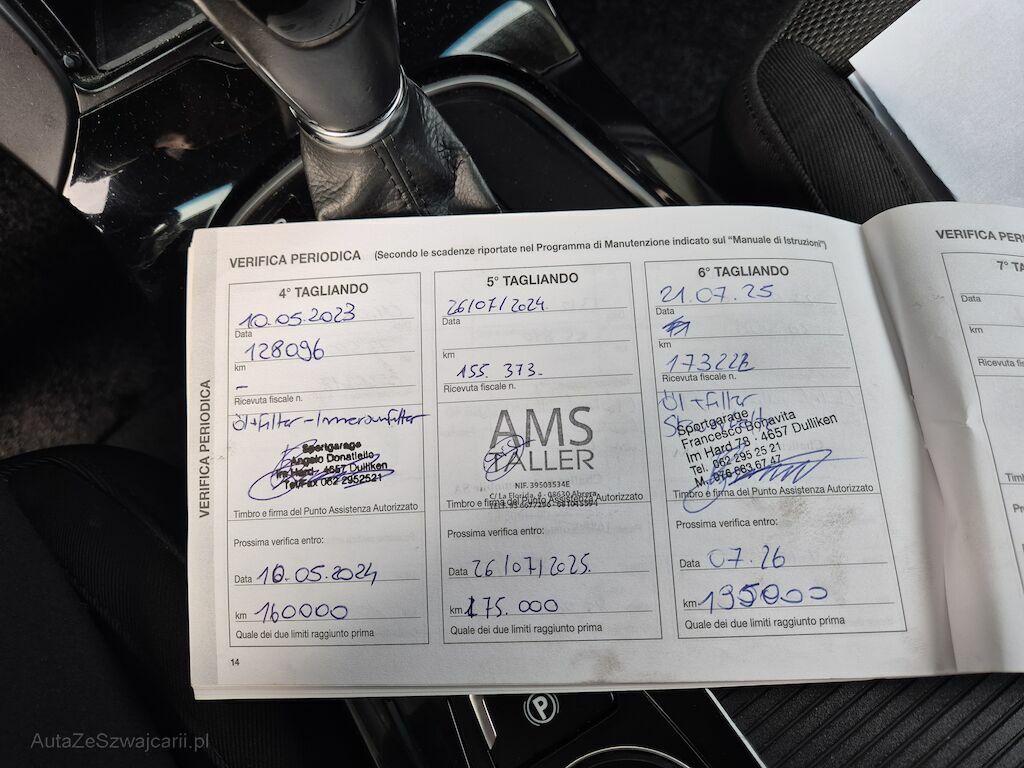 VERIFICA PERIODICA (Secondo le scadenze riportate nel Programma di Manutenzione indicato sul "Manuale di Istruzioni")
VERIFICA PERIODICA
4° TAGLIANDO
10.05.2023
Data
128096
km
-
Ricevuta fiscale n.
Öl+Filter-Innenraumfilter
Sportgarage
Angelo Donatiello
Im Hard · 4657 Dulliken
Tel/Fax 062 2952521
Timbro e firma del Punto Assistenza Autorizzato
Prossima verifica entro:
Data 10.05.2024
km 160000
Quale dei due limiti raggiunto prima
14
5° TAGLIANDO
26/07/2024.
Data
km
155.373.
Ricevuta fiscale n.
AMS
TALLER
NIF. 39503534E
C/ La Florida, 4 - 08630 Abrera
Timbro e firma del Punto Assistenza Autorizzato
Prossima verifica entro:
Data 26/07/2025.
km 175.000
Quale dei due limiti raggiunto prima
6° TAGLIANDO
21.07.25
Data
km
Ricevuta fiscale n.
Öl+Filter
Sportgarage
Francesco Bonavita
Im Hard 78 · 4657 Dulliken
Tel. 062 295 25 21
M. 076 663 67 47
Timbro e firma del Punto Assistenza Autorizzato
Prossima verifica entro:
Data 07.26
km 195000
Quale dei due limiti raggiunto prima
VERIFICA PERI
7° TA
Data
km
Ricevuta fiscale
P
AutaZeSzwajcarii.pl